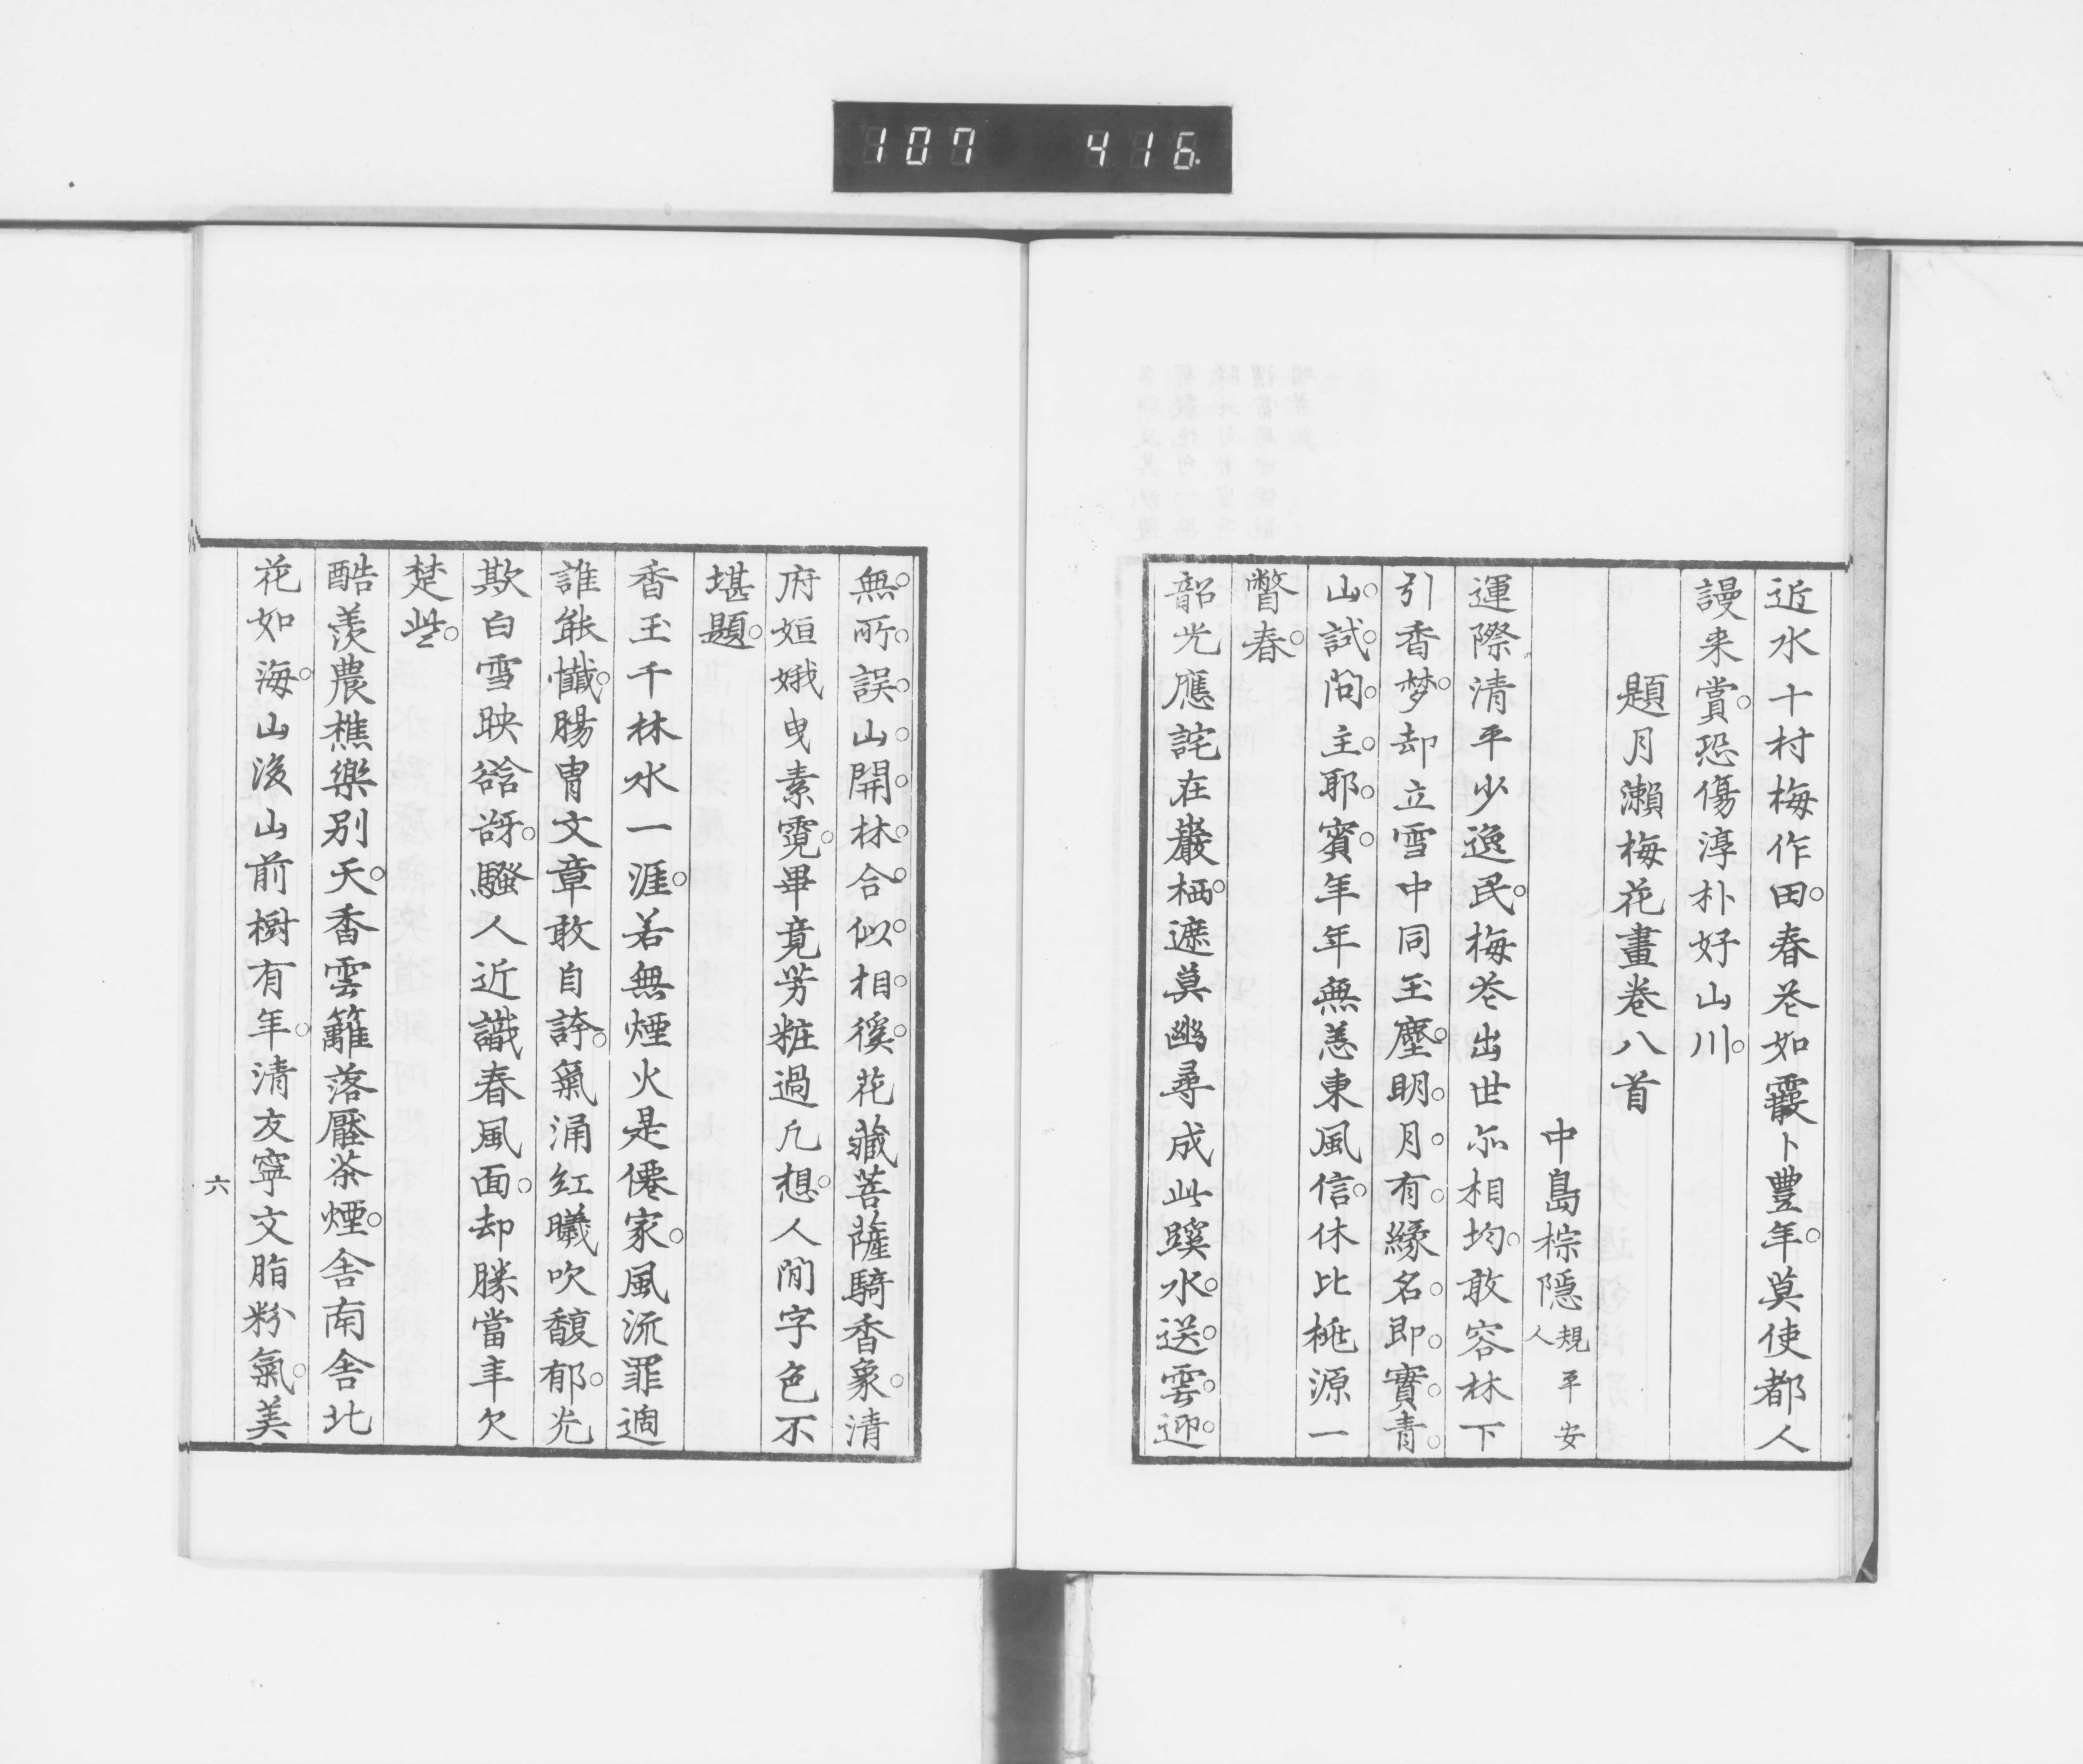 107 416
近水十村梅作田春花如霰卜豊年莫使都人
謾来賞恐傷淳朴好山川
題月瀬梅花畫巻八首
中島棕隠 規 平安人
運際清平少逸民梅花出世亦相均敢容林下
引香梦却立雪中同玉塵明月有縁名即實青
山試問主耶賓年年無恙東風信休比桃源一
瞥春
韶光應詫在巖栖遮莫幽尋成此蹊水送雲迎
無所誤山開林合似相徯花藏菩薩騎香象清
府姮娥曳素霓畢竟芳粧過凢想人間字色不
堪題
香玉千林水一涯若無煙火是僊家風流罪過
誰能懺腸胃文章敢自誇氣涌红曦吹馥郁光
欺白雪映谽谺騷人近識春風面却勝當年欠
楚些
酷羨農樵樂别天香雲籬落壓茶煙舎南舎北
花如海山後山前樹有年清友寧文脂粉氣美
六